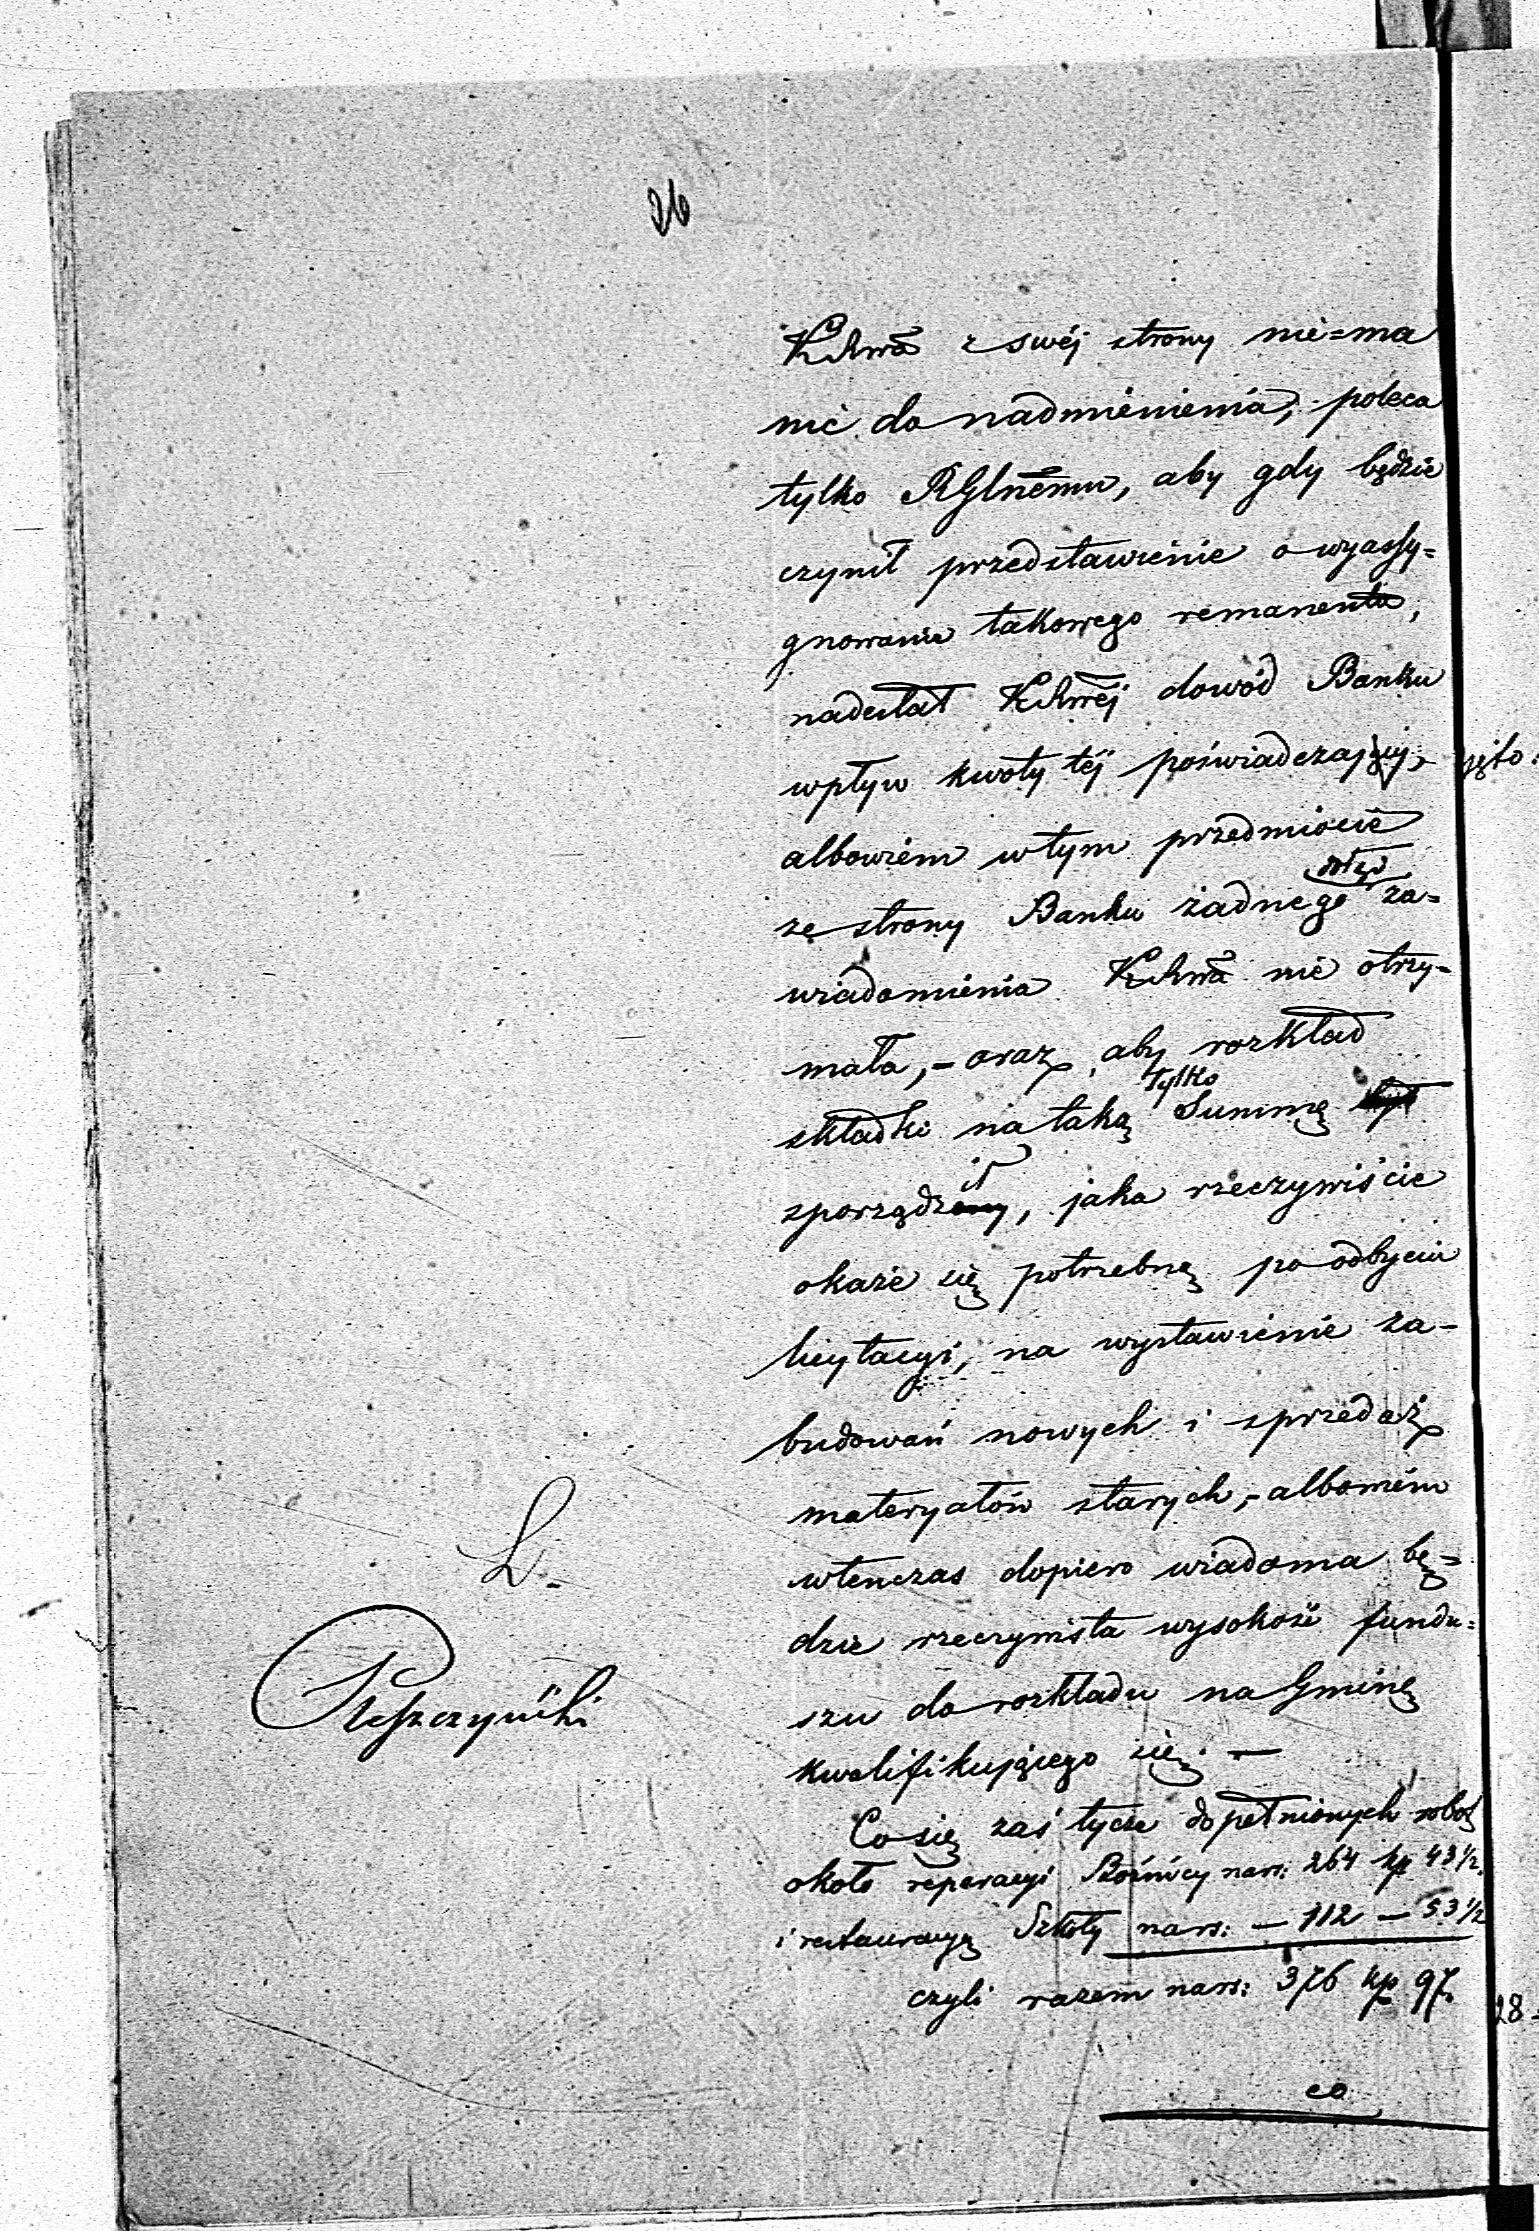 26
KRwa z swéj strony nie=ma
nic do nadmienienia, poleca
tylko RGlnemu, aby gdy będzie
czynił przedstawienie o wyassy=
gnowanie takowego remanentu,
nadesłał KRwéj dowód Banku
wpływ kwoty téj poświadczający,-
albowiem w tym przedmiocie
dotąd
ze strony Banku żadnego za=
wiadomienia KRwa nie otrzy-
mała,- oraz, aby rozkład
tylko
składki na taką Summę
sporządził, jaka rzeczywiście
okaże się potrzebną po odbyciu
licytacyi, na wystawienie za-
budowań nowych i sprzedaż
materyałów starych,- albowiém
wtenczas dopiero wiadoma bę=
dzie rzeczywista wysokość fundu=
szu do rozkładu na Gminę
kwalifikującego się. —
Co się zaś tycze dopełnionych robot
około reperacyi Bożnicy na rs: 264 kp 43 1/2
i restauracyą Szkoły na rs: — 112 — 53 1/2
czyli razem na rs: 376 kp 97.
co
L.